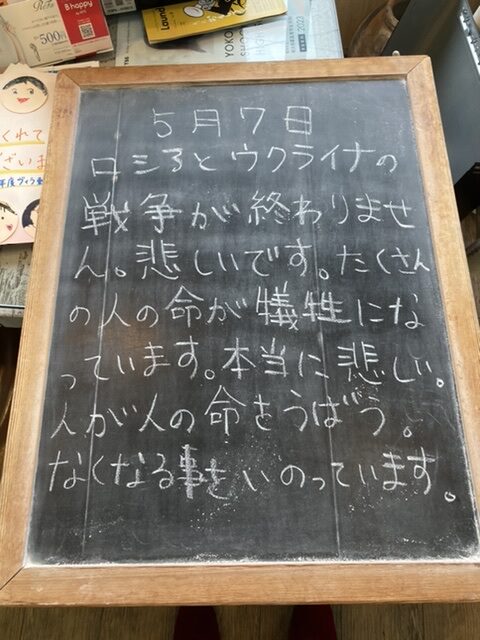 B.happy
500円
Laund
YOKO
2023
くれて
ございま
5月7日
ロシアとウクライナの
戦争が終わりませ
ん。悲しいです。たくさん
の人の命が犠牲にな
っています。本当に悲しい。
人が人の命をうばう。
なくなる事をいのっています。